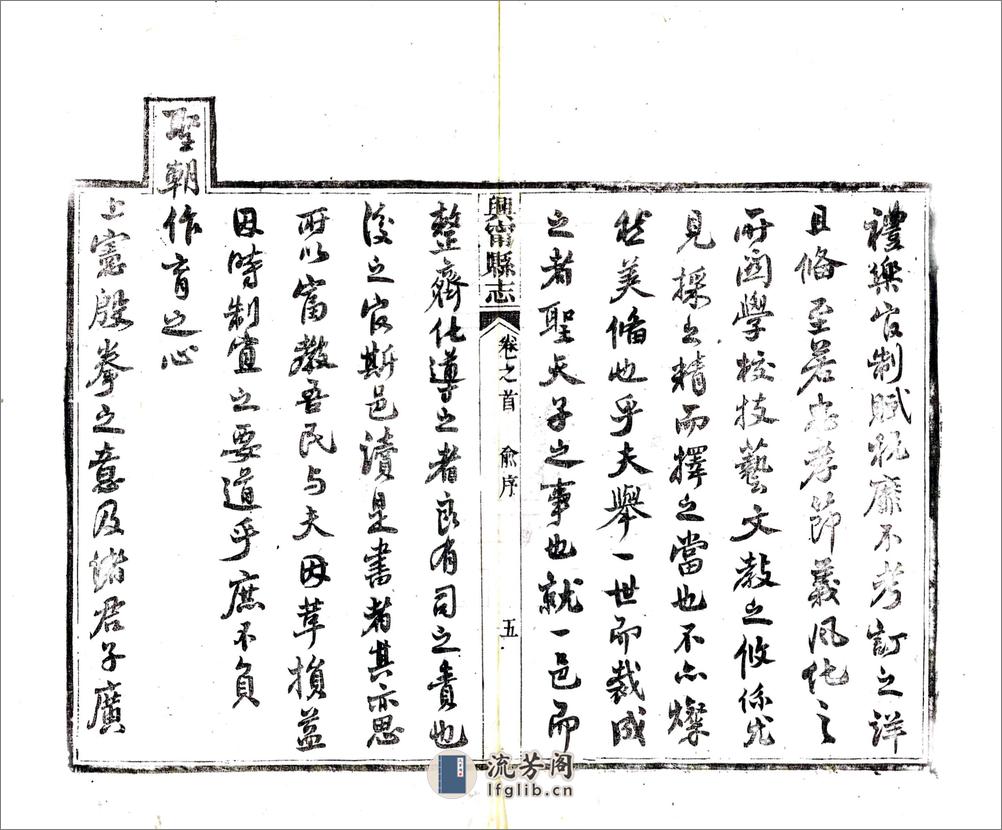 禮樂官制賦稅靡不考訂之詳
且俻至若忠孝節義風化之
所關學校技藝文教之攸係尤
見採之精而擇之當也不亦燦
然美俻也乎夫舉一世而裁成
之者聖天子之事也就一邑而
興甯縣志
卷之首
俞序
五
整齊化導之者良有司之責也
後之官斯邑讀是書者其亦思
所以富教吾民与夫因革損益
因時制宜之要道乎庶不負
聖朝作育之心
上憲殷拳之意及諸君子廣
流芳阁
lfglib.cn